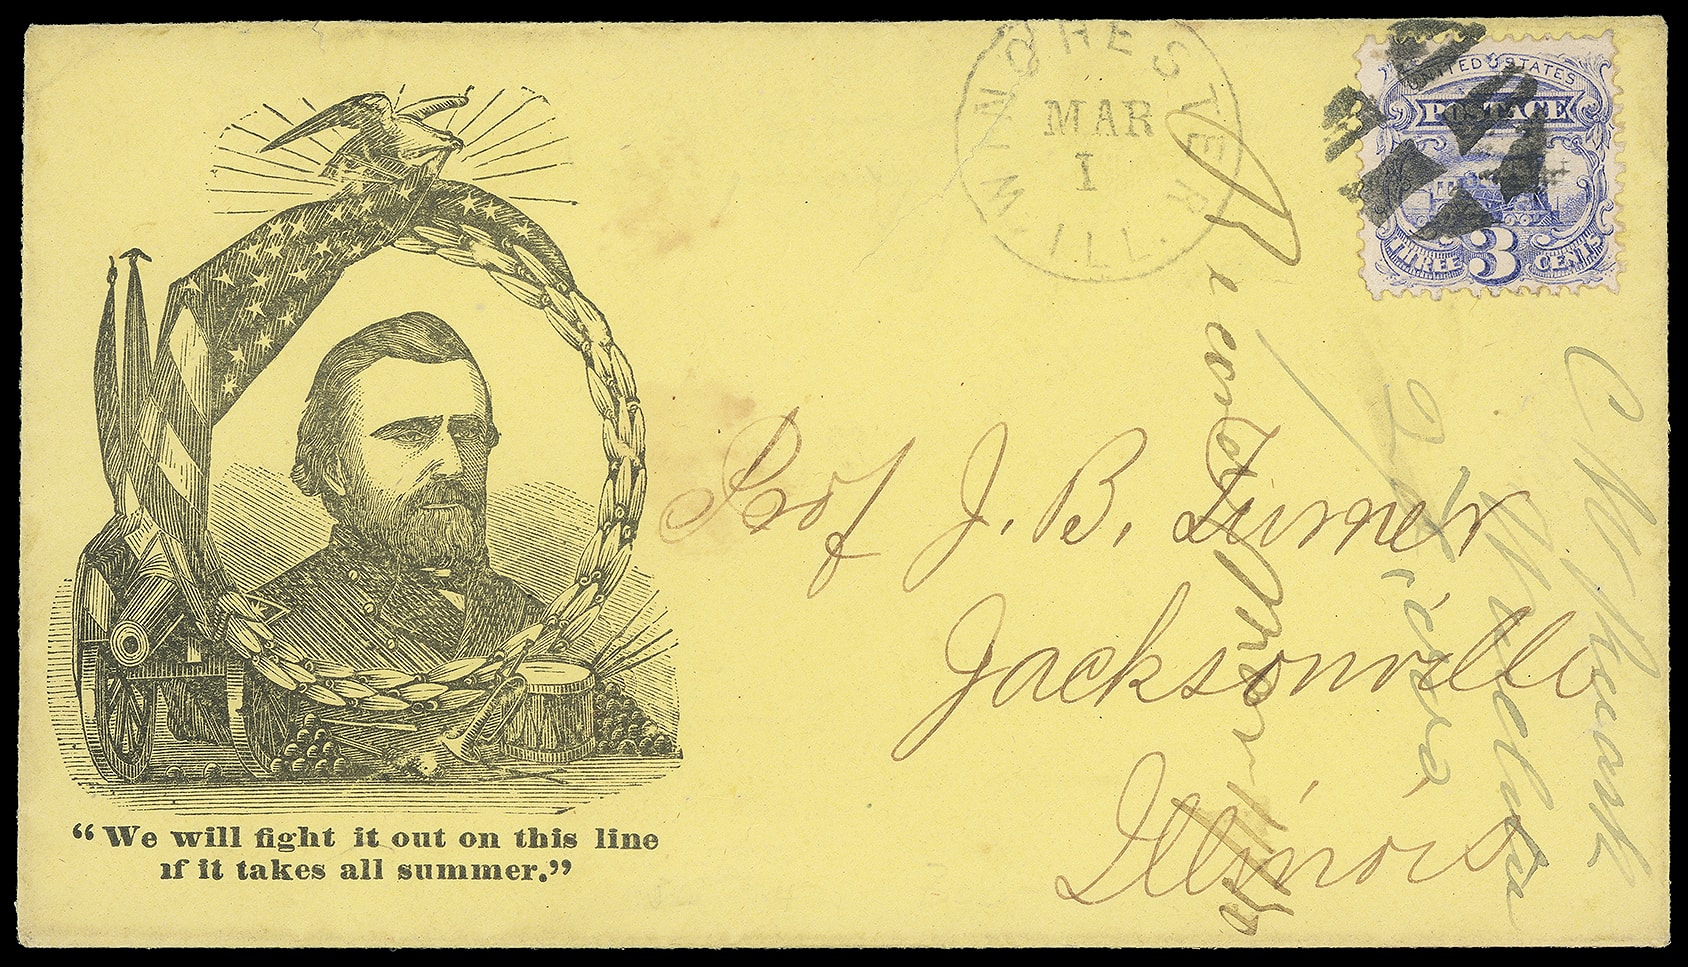 WINCHESTER
ILL.
MAR
1
UNITED STATES
POSTAGE
THREE 3 CENTS
Prof J. B. Turner
Jacksonville
Illinois
“We will fight it out on this line
if it takes all summer.”